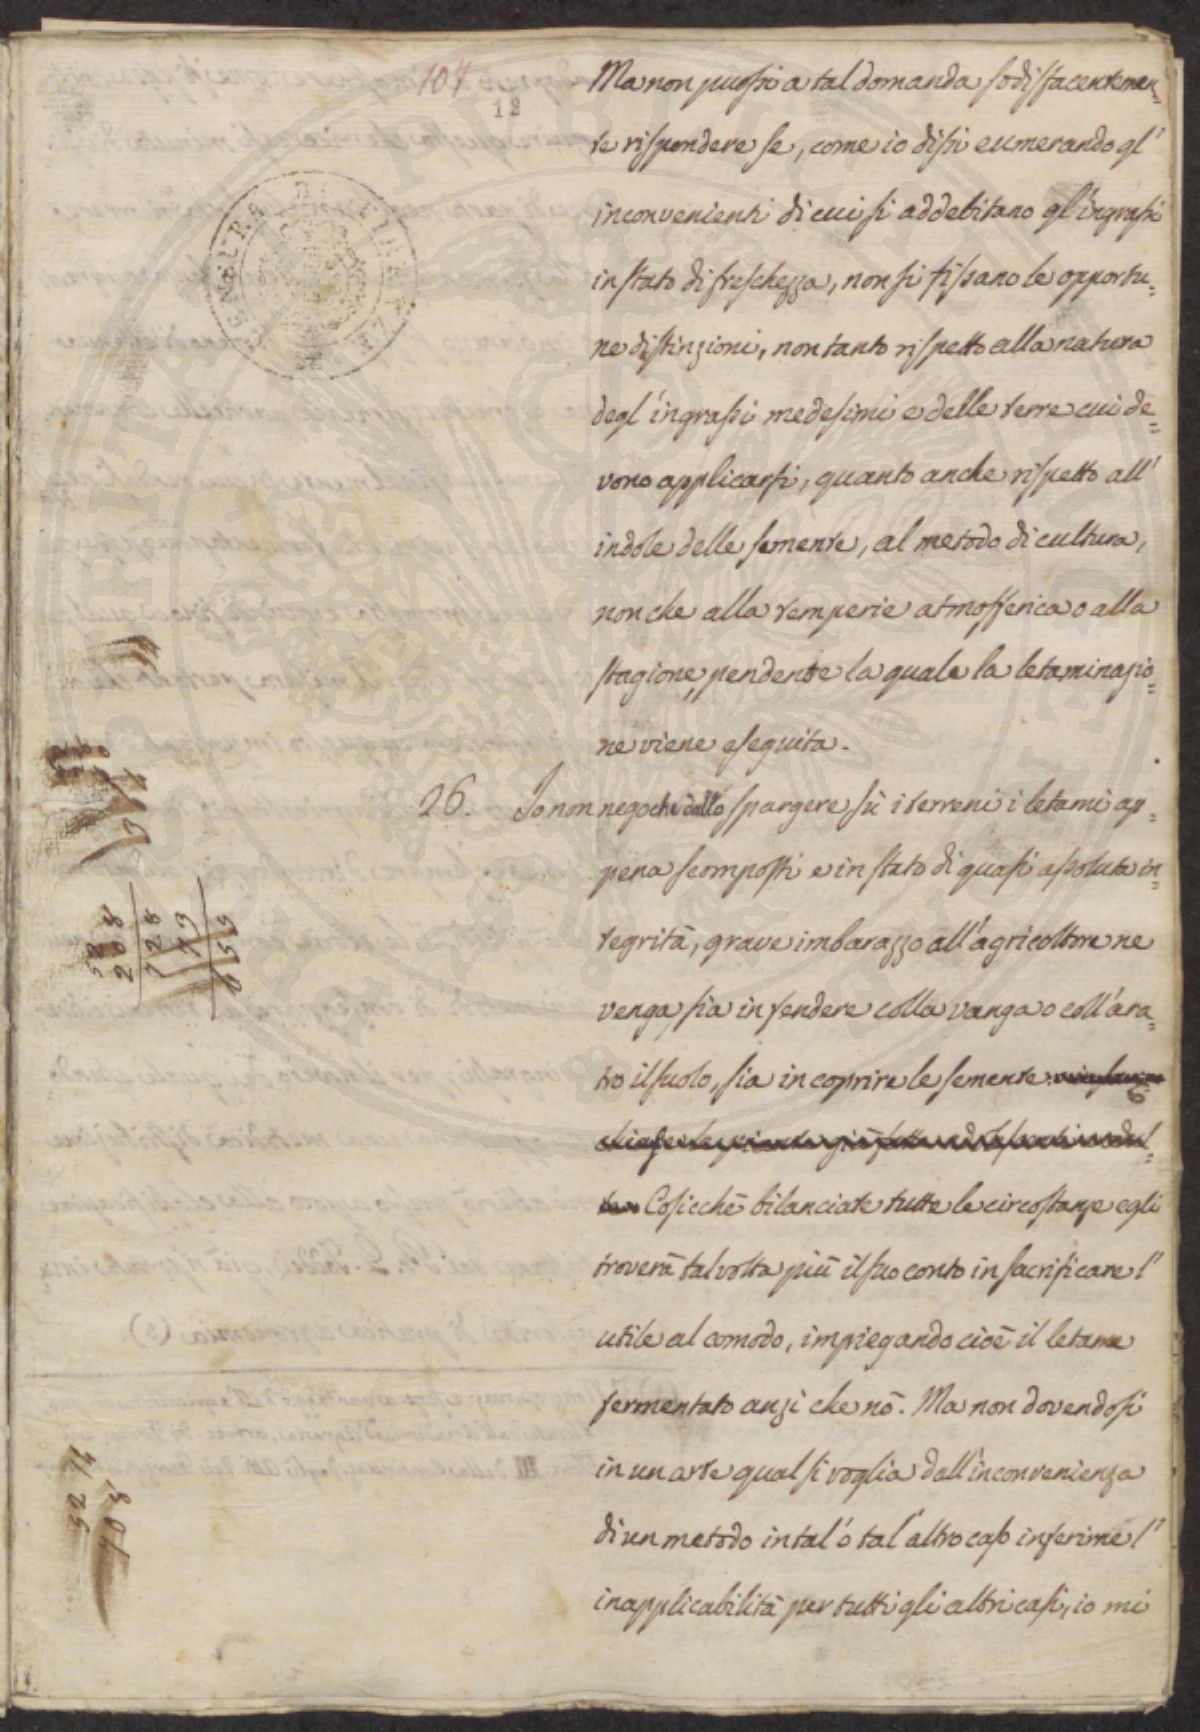 107
12
Ma non puossi a tal domanda sodisfacentemen=
te rispondere se, come io dissi eumerando gl'
inconvenienti di cui si addebitano gl'ingrassi
in stato di freschezza, non si fissano le opportu=
ne distinzioni, non tanto rispetto alla natura
degl'ingrassi medesimi e delle terre cui de=
vono applicarsi, quanto anche rispetto all'
indole delle semente, al metodo di cultura,
non che alla temperie atmosferica o alla
stagione, pendente la quale la letaminazio=
ne viene eseguita.
26. Io non nego che dallo spargere sù i terreni i letami ap=
pena scomposti e in stato di quasi assoluta in=
tegrità, grave imbarazzo all'agricoltore ne
venga, sia in fendere colla vanga o coll'ara=
tro il suolo, sia in coprire le semente
Cosicchè bilanciate tutte le circostanze egli
troverà talvolta più il suo conto in sacrificare l'
utile al comodo, impiegando cioè il letame
fermentato anzi che nò. Ma non dovendosi
in un arte qual si voglia dall'inconvenienza
di un metodo in tal'ò tal'altro caso inferirne l'
inapplicabilità per tutti gli altri casi, io mi